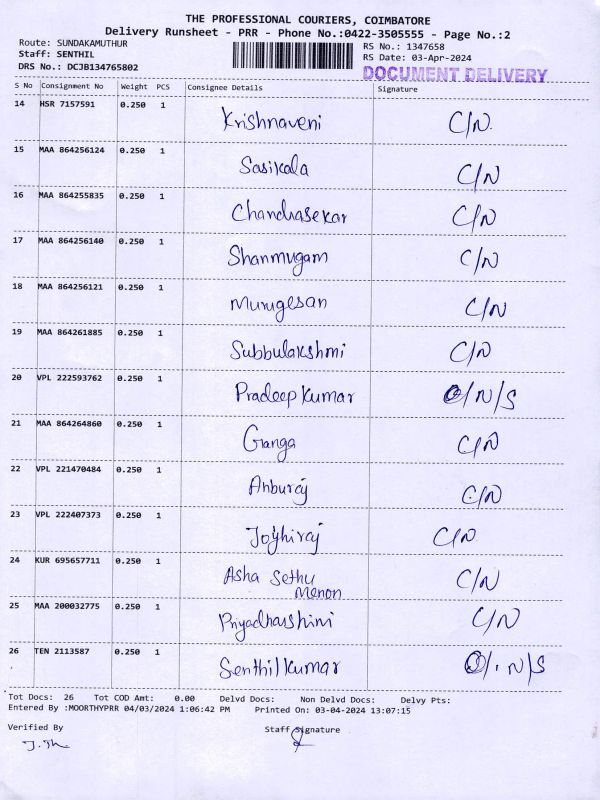 THE PROFESSIONAL COURIERS, COIMBATORE
Delivery Runsheet - PRR - Phone No.:0422-3505555 - Page No.:2
Route: SUNDAKAMUTHUR RS No.: 1347658
Staff: SENTHIL RS Date: 03-Apr-2024
DRS No.: DCJB134765802 DOCUMENT DELIVERY
S No Consignment No Weight PCS Consignee Details Signature
14 HSR 7157591 0.250 1 Krishnaveni C/N
15 MAA 864256124 0.250 1 Sasikala C/N
16 MAA 864255835 0.250 1 Chandrasekar C/N
17 MAA 864256140 0.250 1 Shanmugam C/N
18 MAA 864256121 0.250 1 Murugesan C/N
19 MAA 864261885 0.250 1 Subbulakshmi C/N
20 VPL 222593762 0.250 1 Pradeep Kumar O/N/S
21 MAA 864264860 0.250 1 Ganga C/N
22 VPL 221470484 0.250 1 Anburaj C/N
23 VPL 222407373 0.250 1 C/N
24 KUR 695657711 0.250 1 Asha Sethu C/N
Menon
25 MAA 200032775 0.250 1 Priyadharshini C/N
26 TEN 2113587 0.250 1 Senthil Kumar O/N/S
Tot Docs: 26 Tot COD Amt: 0.00 Delvd Docs: Non Delvd Docs: Delvy Pts:
Entered By :MOORTHYPRR 04/03/2024 1:06:42 PM Printed On: 03-04-2024 13:07:15
Verified By Staff Signature